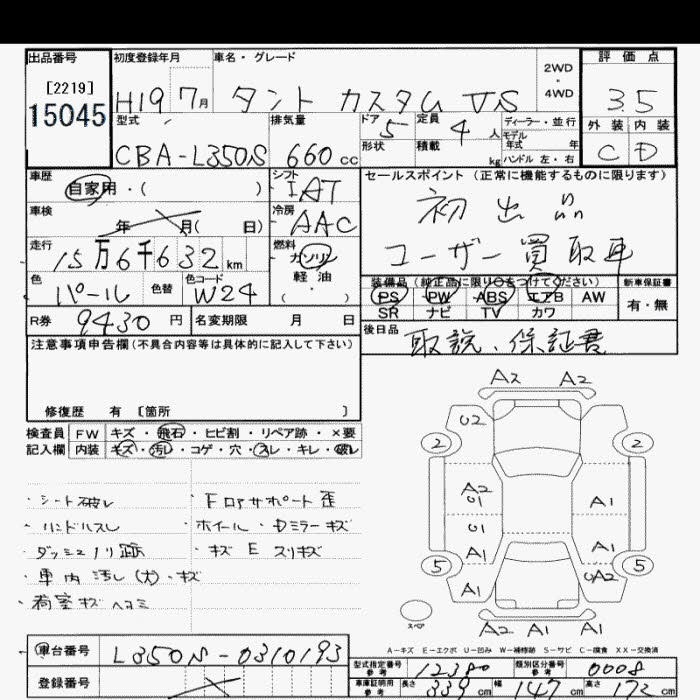 出品番号
[2219]
15045
初度登録年月
H19 7月
車名・グレード
タント カスタム VS
2WD
・
4WD
評価点
3.5
型式
CBA-L350S
排気量
660 cc
ドア 5
形状
定員 4 人
積載 kg
ディーラー・並行
モデル
年式 年
ハンドル 左・右
外装 内装
C D
車歴
自家用・( )
シフト
IAT
車検
年 月( 日)
冷房
AAC
走行
15万6千632 km
燃料
ガソリン
軽油
( ・ )
色
パール
色替
色コード
W24
R券 9430 円
名変期限 月 日
セールスポイント(正常に機能するものに限ります)
初出品
ユーザー買取車
装備品(純正品に限り○をつけてください)
PS PW ABS エアB AW
SR ナビ TV カワ
新車保証書
有・無
後日品
取説、保証書
注意事項申告欄(不具合内容等は具体的に記入して下さい)
修復歴 有 [箇所 ]
検査員
記入欄
FW キズ・飛石・ヒビ割・リペア跡・×要
内装 キズ・汚れ・コゲ・穴・スレ・キレ・破レ
・シート破レ
・ハンドルスレ
・ダッシュノリ跡
・車内汚し(大)・キズ
・荷室キズヘコミ
・ホイール・Dミラーキズ
A2 A2
U2
2 2
A2
U1
A1
U1
A1 A1
5 5
UA2
A1 A1
A2 A1 A1
スペア
A-キズ E-エクボ U-凹み W-補修跡 S-サビ C-腐食 XX-交換済
車台番号
L350S-0310193
登録番号
型式指定番号
参考
12380
類別区分番号
参考
0008
車庫証明用
参考
長さ 339 cm 幅 147 cm 高さ 172 cm